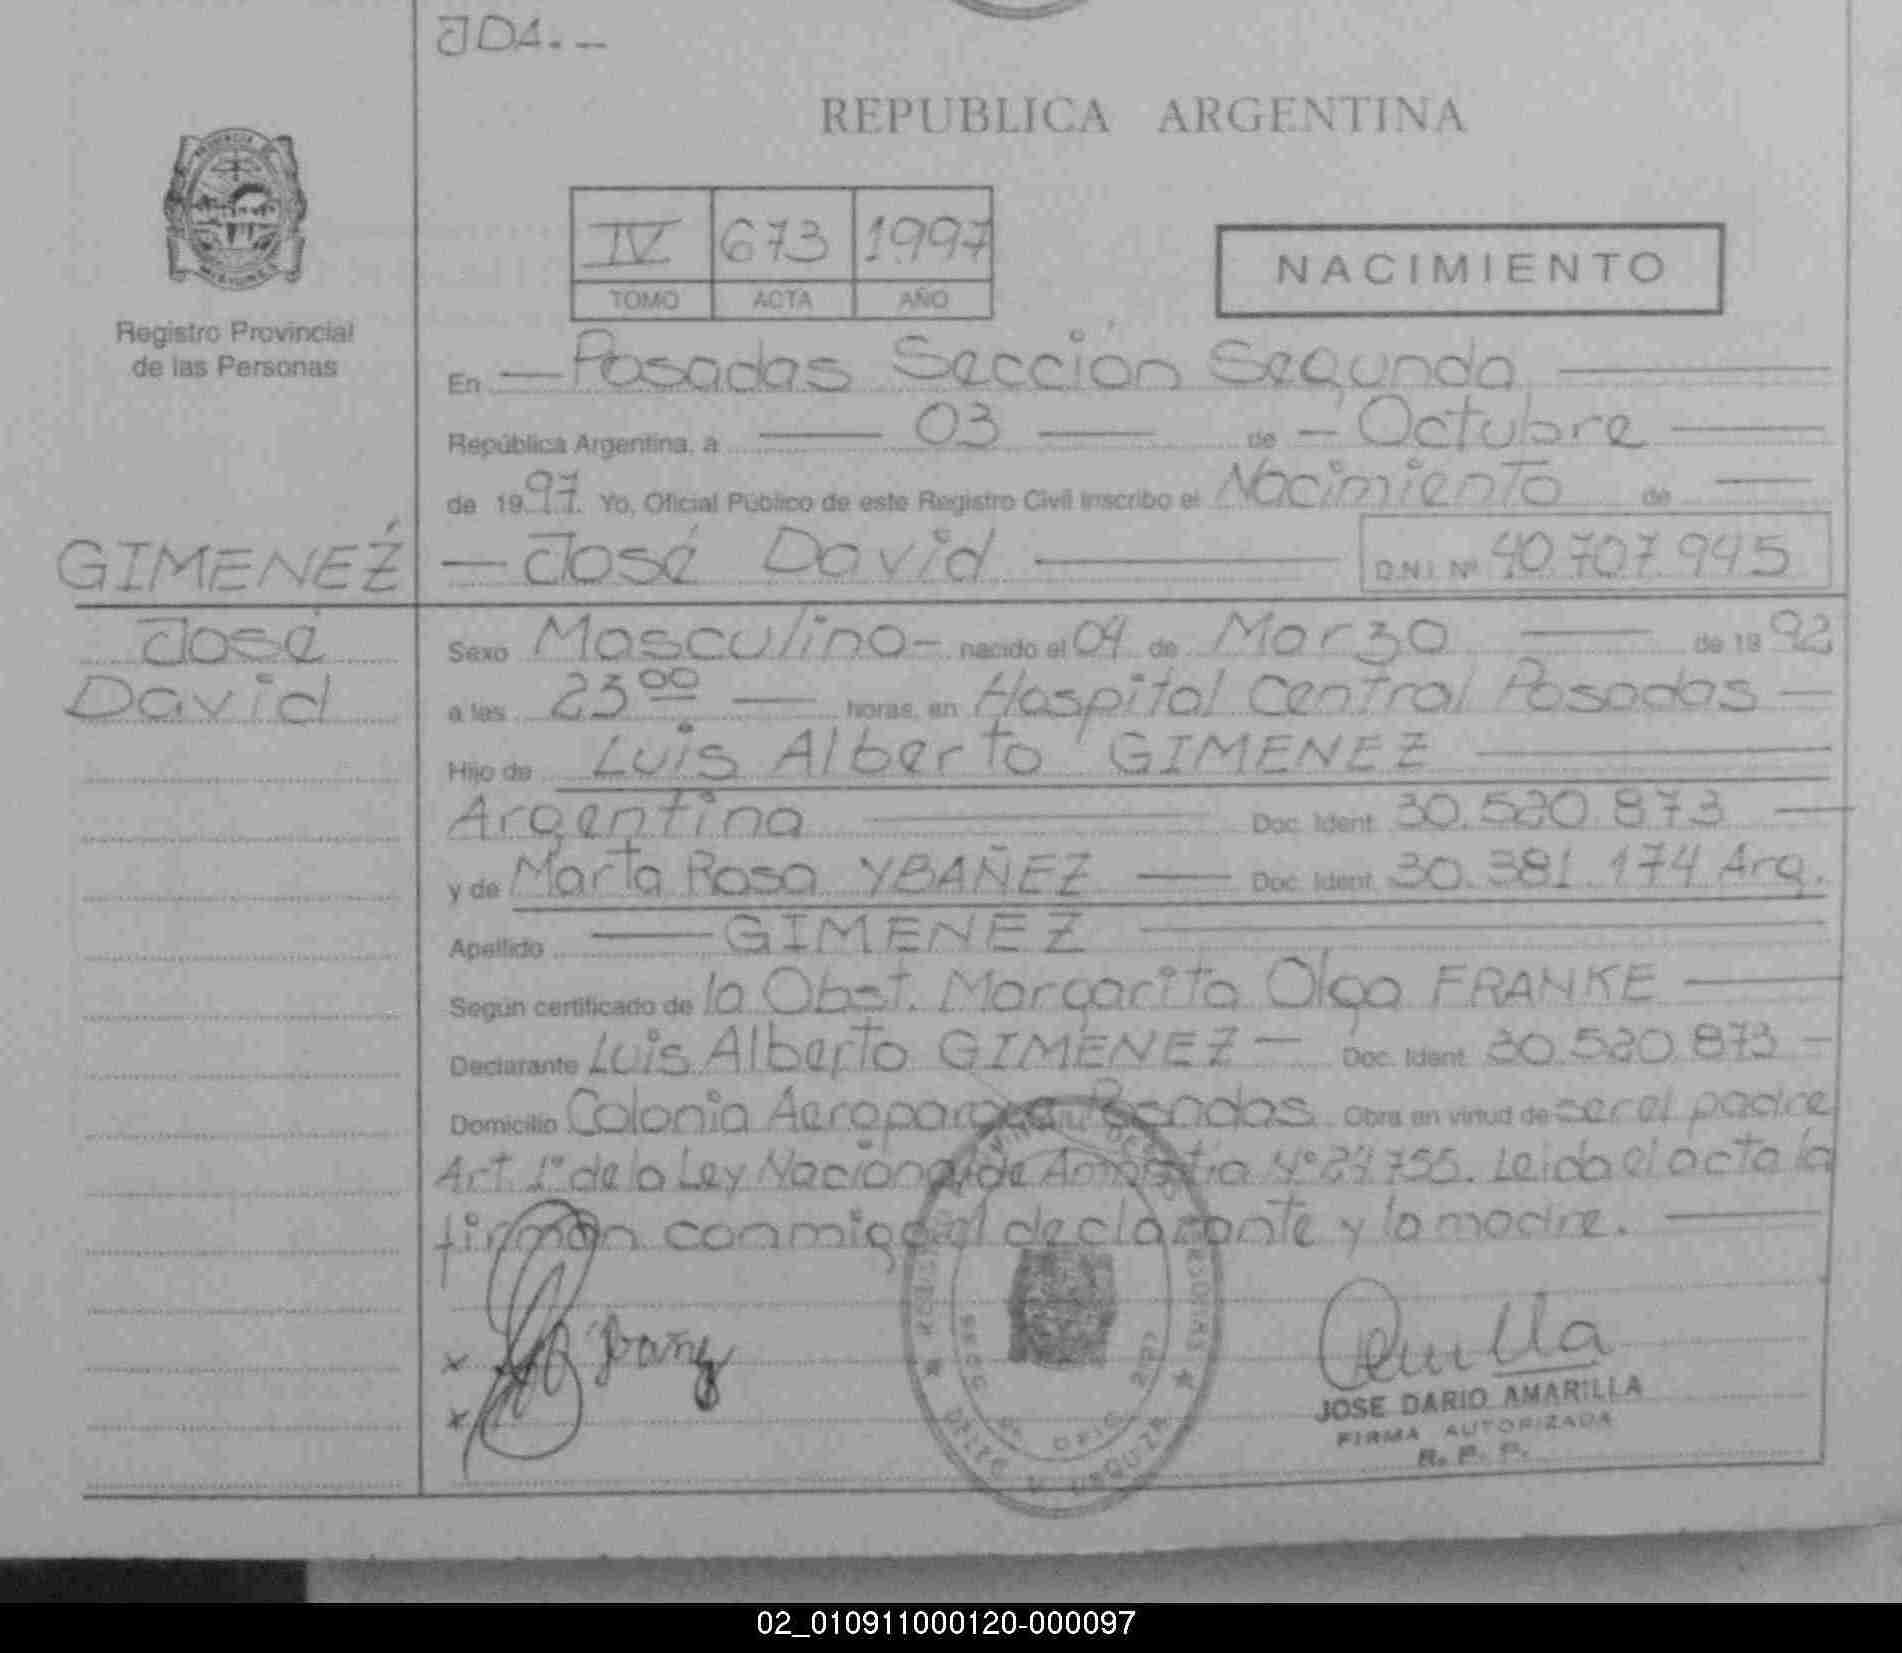 JDA.-
REPUBLICA ARGENTINA
IV 673 1997
TOMO ACTA AÑO
NACIMIENTO
Registro Provincial
de las Personas
En Posadas Sección Segunda
República Argentina, a 03 de Octubre
de 1997. Yo, Oficial Público de este Registro Civil inscribo el Nacimiento de
José David D.N.I. Nº 40.707.945
GIMENEZ
José
David
Sexo Masculino- nacido el 04 de Marzo de 1992
a las 23⁰⁰ horas, en Hospital Central Posadas
Hijo de Luis Alberto GIMENEZ
Argentina Doc. Ident. 30.520.873
y de Marta Rosa YBAÑEZ Doc. Ident. 30.381.174 Arg.
Apellido GIMENEZ
Según certificado de la Obst. Margarita Olga FRANKE
Declarante Luis Alberto GIMENEZ Doc. Ident. 30.520.873
Domicilio Colonia Aeroparque Posadas Obra en virtud de ser el padre
Art. 1º de la Ley Nacional de Amnistia Nº 24.755. Leida el acta la
firman conmigo el declarante y la madre.
JOSE DARIO AMARILLA
FIRMA AUTORIZADA
R. P. P.
02_010911000120-000097